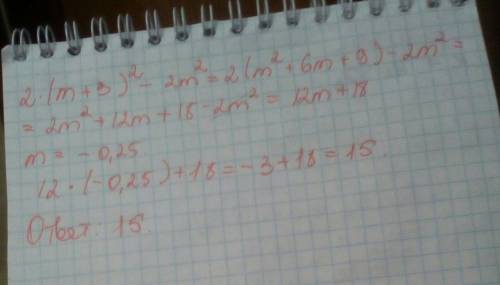 2·(m+3)² - 2m² = 2(m² + 6m + 9) - 2m² =
= 2m² + 12m + 18 - 2m² = 12m + 18
m = - 0,25
12 · (-0,25) + 18 = -3 + 18 = 15.
Ответ: 15.